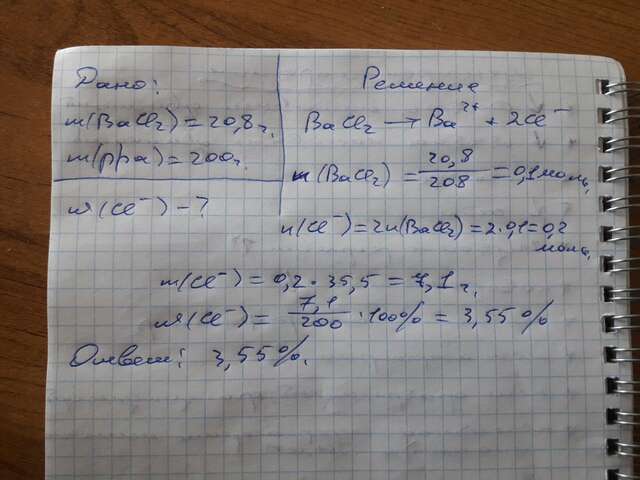 Дано:
m(BaCl₂) = 20,8 г.
m(р-ра) = 200 г.
ω(Cl⁻) - ?
Решение
BaCl₂ → Ba²⁺ + 2Cl⁻
n(BaCl₂) = 20,8/208 = 0,1 моль.
n(Cl⁻) = 2n(BaCl₂) = 2·0,1 = 0,2
моль.
m(Cl⁻) = 0,2 · 35,5 = 7,1 г.
ω(Cl⁻) = 7,1/200 · 100% = 3,55%
Ответ: 3,55%.